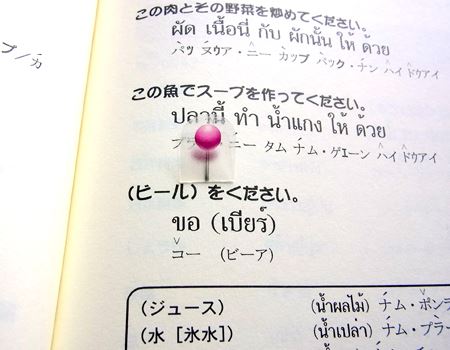 この肉とその野菜を炒めてください。
ผัด เนื้อนี่ กับ ผักนั้น ให้ ด้วย
パッ ヌウア・ニー カップ パック・ナン ハイ ドゥアイ
この魚でスープを作ってください。
ปลานี้ ทำ น้ำแกง ให้ ด้วย
ニー タム ナム・ゲーン ハイ ドゥアイ
(ビール) をください。
ขอ (เบียร์)
コー (ビーア)
(ジュース) (น้ำผลไม้) ナム・ポンラ
(水 [氷水]) (น้ำเปล่า) ナム・プラー